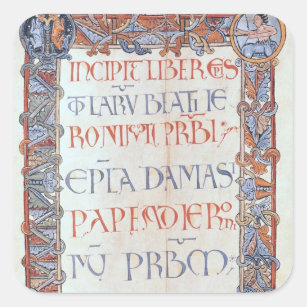 INCIPIT LIBER EPS
TLARŪ BEATI IE
RONIMI PRBI
EPLA DAMASI
PAPE AD IERO
NŪ PRBM